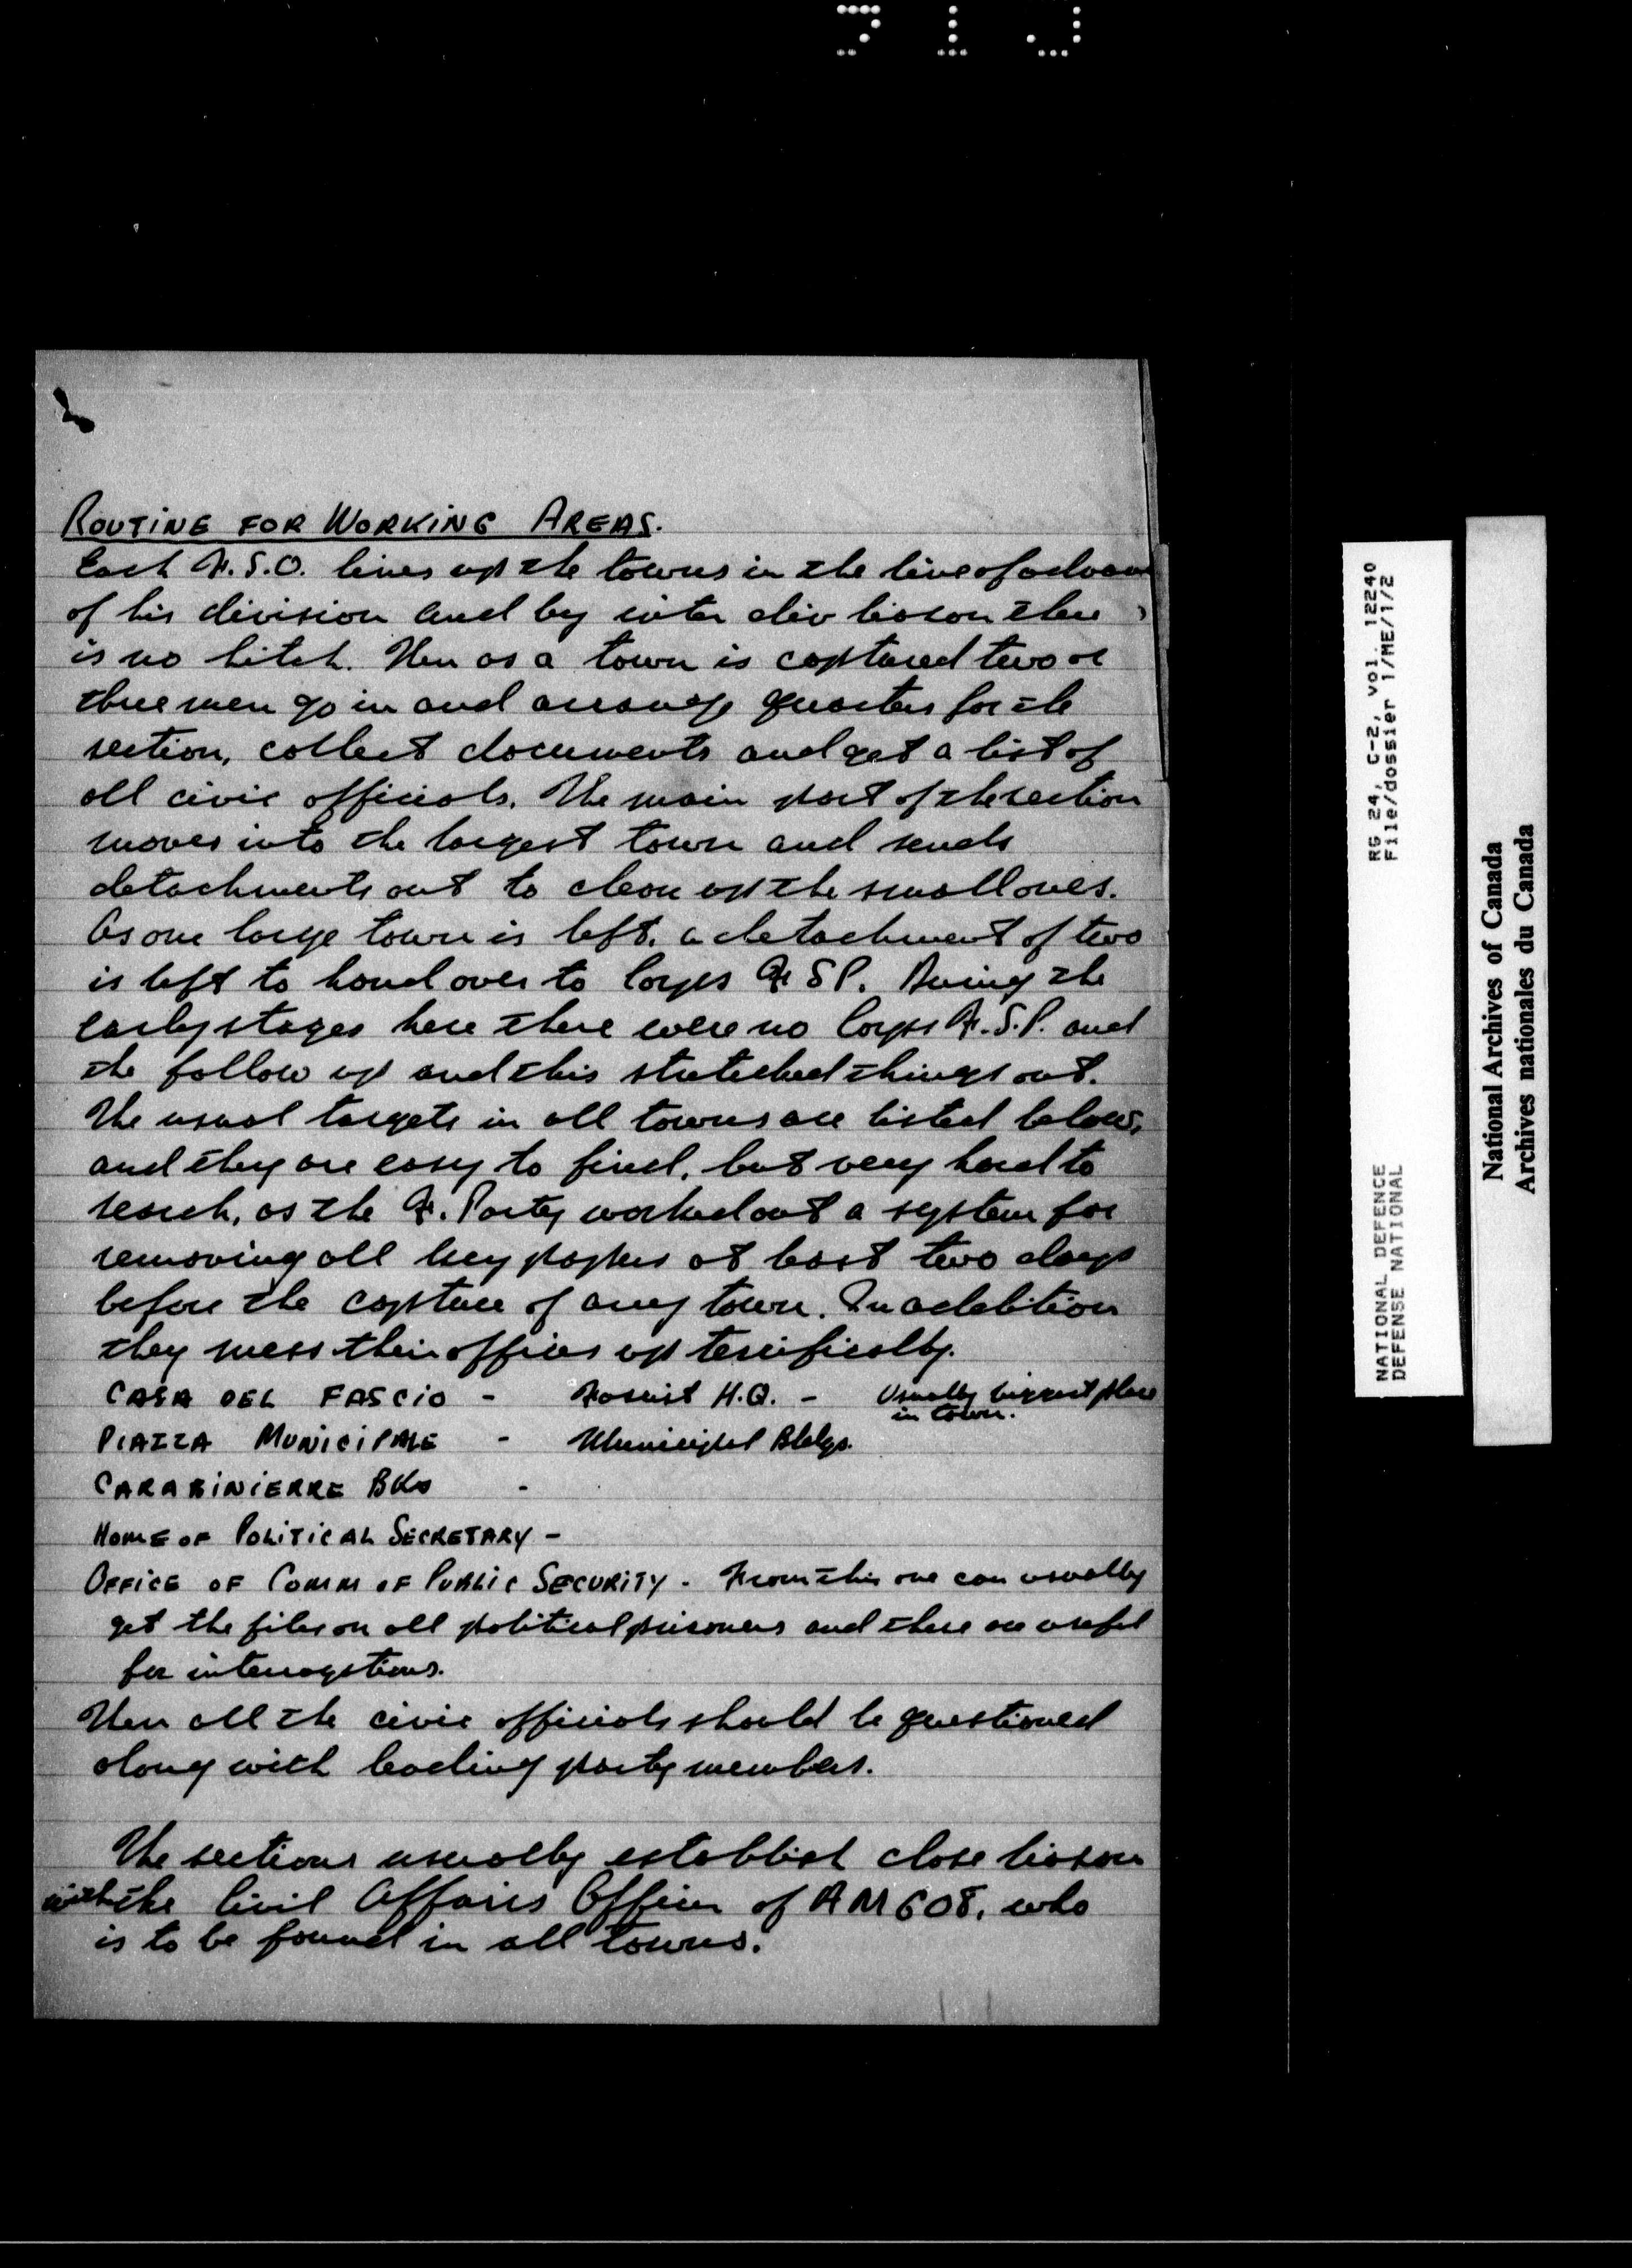 ROUTINE FOR WORKING AREAS.
Each F.S.O. lines up the towns in the line of advance
of his division and by inter div liason there
is no hitch. Then as a town is captured two or
three men go in and arrange quarters for the
section, collect documents and get a list of
all civic officials. The main part of the section
moves into the largest town and sends
detachments out to clean up the small ones.
As one large town is left, a detachment of two
is left to hand over to Corps F S P. During the
early stages here there were no Corps F.S.P. and
the follow up and this stretched things out.
The usual targets in all towns are listed below,
and they are easy to find, but very hard to
search, as the F. Party worked out a system for
removing all key papers at least two days
before the capture of any town. In addition
they mess their offices up terrifically.
CASA DEL FASCIO - Fascist H.Q. - Usually biggest place
in town.
PIAZZA MUNICIPALE - Municipal Bldgs.
CARABINIERRE BKs -
HOME OF POLITICAL SECRETARY -
OFFICE OF COMM OF PUBLIC SECURITY - From this one can usually
get the files on all political prisoners and these are useful
for interrogations.
Then all the civic officials should be questioned
along with leading party members.
The sections usually establish close liason
with the Civil Affairs Officer of AMGOT, who
is to be found in all towns.
RG 24, C-2, vol. 12240
File/dossier 1/ME/1/2
NATIONAL DEFENCE
DEFENSE NATIONAL
National Archives of Canada
Archives nationales du Canada